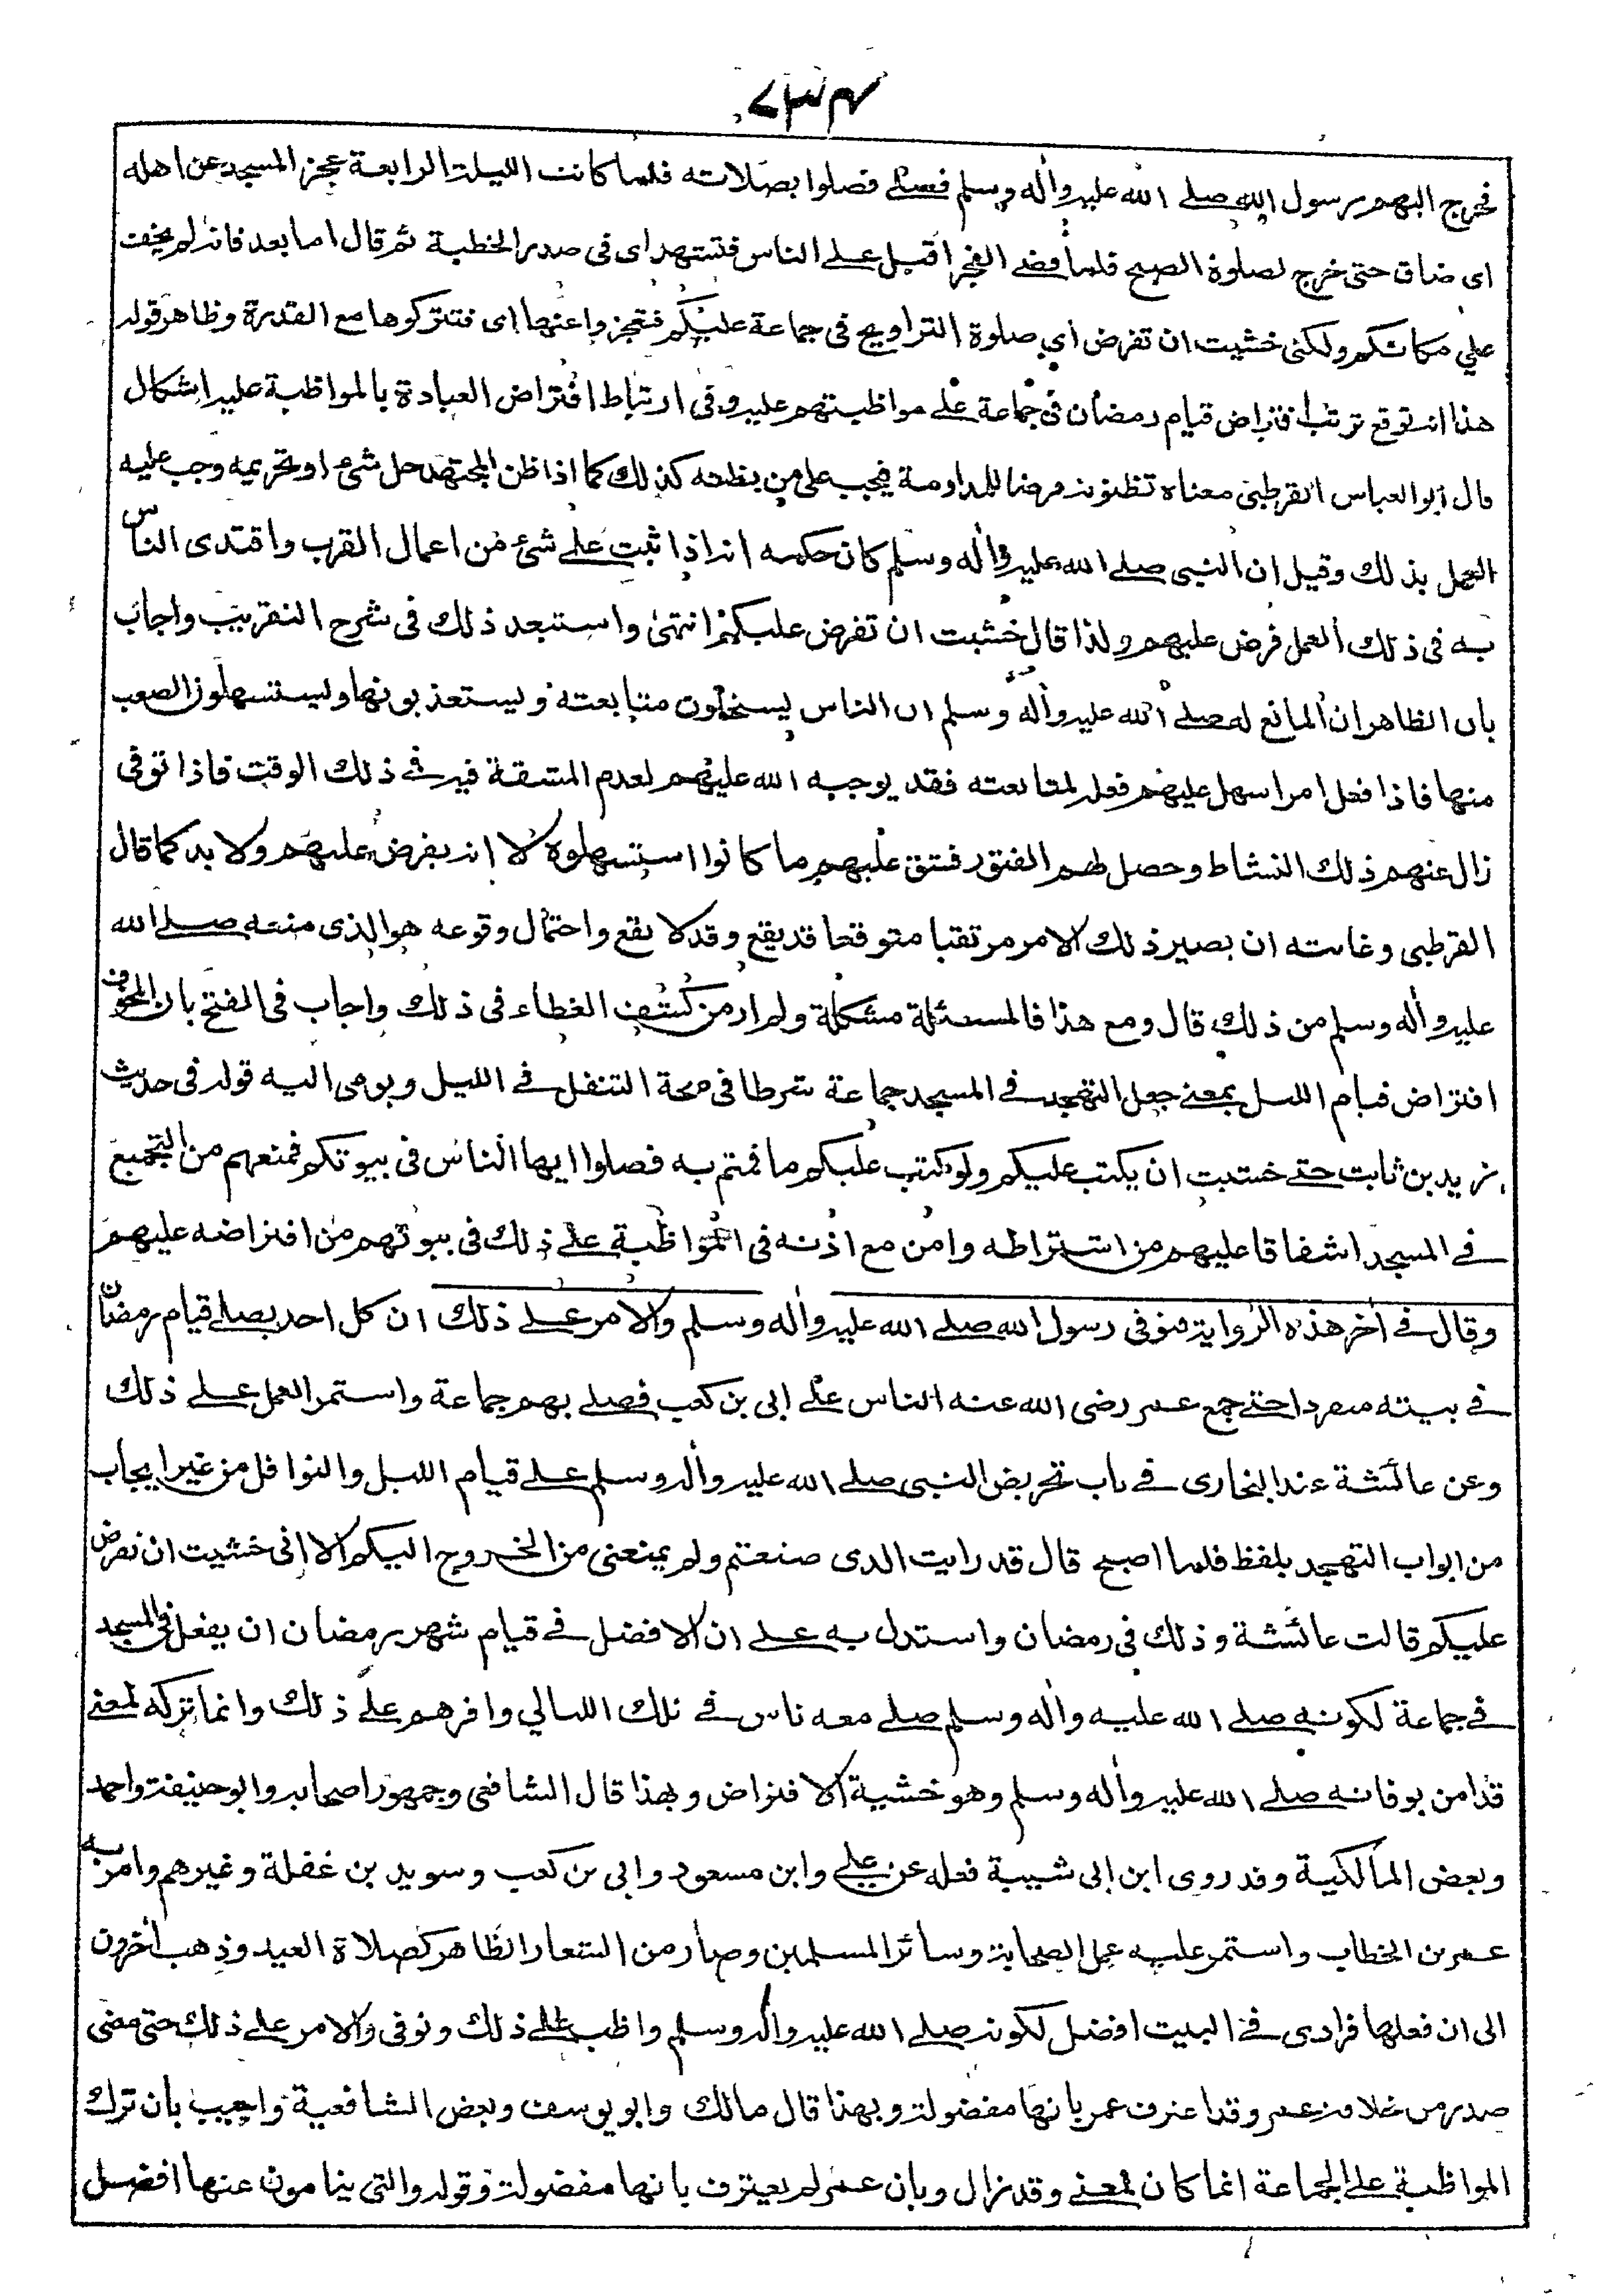 فخرج اليهم رسول الله صلى الله عليه وأله وسلم فصلى فصلوا بصلاته فلما كانت الليلة الرابعة عجز المسجد عن اهله
اى ضاق حتى خرج لصلوة الصبح فلما قضى الفجر اقبل على الناس فتشهد اى فى صدر الخطبة ثم قال اما بعد فانه لم يخف
علي مكانكم ولكنى خشيت ان تفرض أي صلوة التراويح فى جماعة عليكم فتعجزوا عنها اى فتتركوها مع القدرة وظاهر قوله
هذا انه توقع ترتب افتراض قيام رمضان فى جماعة على مواظبتهم عليه وفى ارتباط افتراض العبادة بالمواظبة عليه اشكال
قال أبو العباس القرطبى معناه تظنونه فرضا للمداومة فيجب على من يظنه كذلك كما اذا ظن المجتهد حل شىء او تحريمه وجب عليه
العمل بذلك وقيل ان النبى صلى الله عليه وأله وسلم كان حكمه انه اذا ثبت على شىء من اعمال القرب واقتدى الناس
به فى ذلك العمل فرض عليهم ولذا قال خشيت ان تفرض عليكم انتهى واستبعد ذلك فى شرح التقريب واجاب
بان الظاهر ان المانع له صلى الله عليه وأله وسلم ان الناس يستحلون متابعته ويستعذبونها ويستسهلون الصعب
منها فاذا فعل امرا سهل عليهم فعله لمتابعته فقد يوجبه الله عليهم لعدم المشقة فيه فى ذلك الوقت فاذا توفى
زال عنهم ذلك النشاط وحصل لهم الفتور فشق عليهم ما كانوا استسهلوه لا انه يفرض عليهم ولا بد كما قال
القرطبى وغايته ان يصير ذلك الامر مرتقبا متوقعا قد يقع وقد لا يقع واحتمال وقوعه هو الذى منعه صلى الله
عليه وأله وسلم من ذلك قال ومع هذا فالمسئلة مشكلة ولم ار من كشف الغطاء فى ذلك واجاب فى الفتح بان المخوف
افتراض قيام الليل بمعنى جعل التهجد فى المسجد جماعة شرطا فى صحة التنفل فى الليل ويومى اليه قوله فى حديث
زيد بن ثابت حتى خشيت ان يكتب عليكم ولو كتب عليكم ما قمتم به فصلوا ايها الناس فى بيوتكم فمنعهم من التجميع
فى المسجد اشفاقا عليهم من اشتراطه وامن مع اذنه فى المواظبة على ذلك فى بيوتهم من افتراضه عليهم
وقال فى أخر هذه الرواية فتوفى رسول الله صلى الله عليه وأله وسلم والامر على ذلك ان كل احد يصلى قيام رمضان
فى بيته منفردا حتى جمع عمر رضى الله عنه الناس على ابى بن كعب فصلى بهم جماعة واستمر العمل على ذلك
وعن عائشة عند البخارى فى باب تحريض النبى صلى الله عليه وأله وسلم على قيام الليل والنوافل من غير ايجاب
من ابواب التهجد بلفظ فلما اصبح قال قد رايت الذى صنعتم ولم يمنعنى من الخروج اليكم الا انى خشيت ان تفرض
عليكم قالت عائشة وذلك فى رمضان واستدل به على ان الافضل فى قيام شهر رمضان ان يفعل فى المسجد
فى جماعة لكونه صلى الله عليه وأله وسلم صلى معه ناس فى تلك الليالي واقرهم على ذلك وانما تركه لمعنى
قد امن بوفاته صلى الله عليه وأله وسلم وهو خشية الافتراض وبهذا قال الشافعى وجمهور اصحابه وابو حنيفة واحمد
وبعض المالكية وقد روى ابن ابى شيبة فعله عن على وابن مسعود وابى بن كعب وسويد بن غفلة وغيرهم وامر به
عمر بن الخطاب واستمر عليه عمل الصحابة وسائر المسلمين وصار من الشعار الظاهر كصلاة العيد وذهب أخرون
الى ان فعلها فرادى فى البيت افضل لكونه صلى الله عليه وأله وسلم واظب على ذلك وتوفى والامر على ذلك حتى مضى
صدر من خلافة عمر وقد اعترف عمر بانها مفضولة وبهذا قال مالك وابو يوسف وبعض الشافعية واجيب بأن ترك
المواظبة على الجماعة انما كان لمعنى وقد زال وبان عمر لم يعترف بانها مفضولة وقوله والتى ينامون عنها افضل